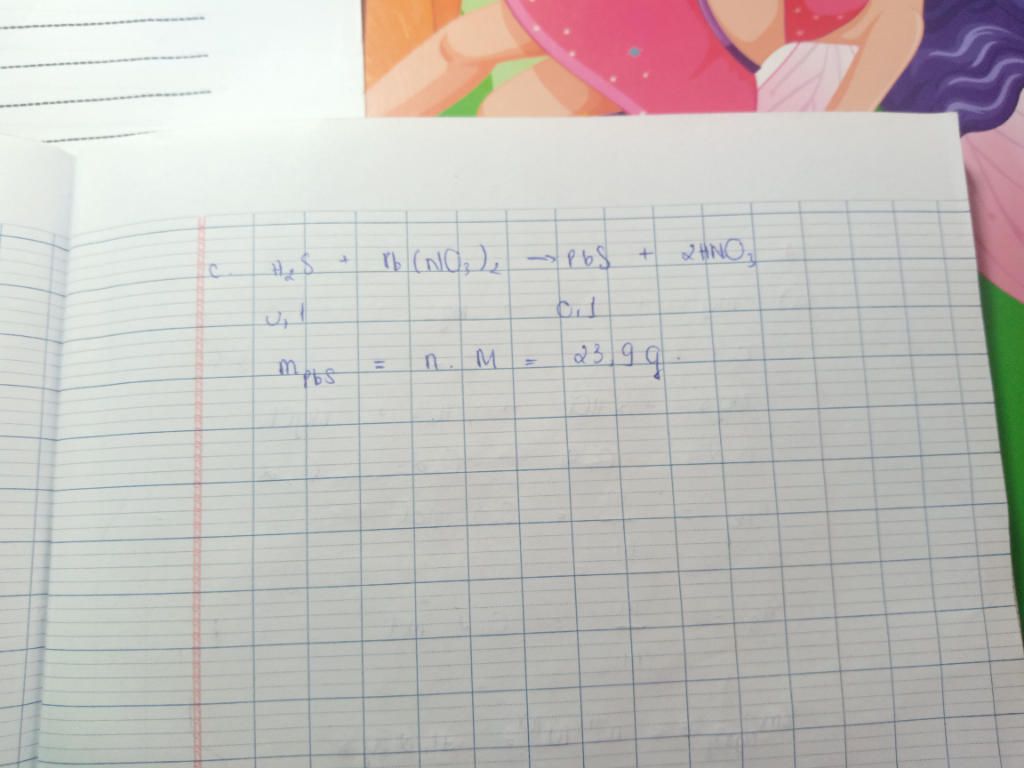 c. H₂S + Pb(NO₃)₂ → PbS + 2HNO₃
0,1 0,1
m_PbS = n . M = 23,9 g.